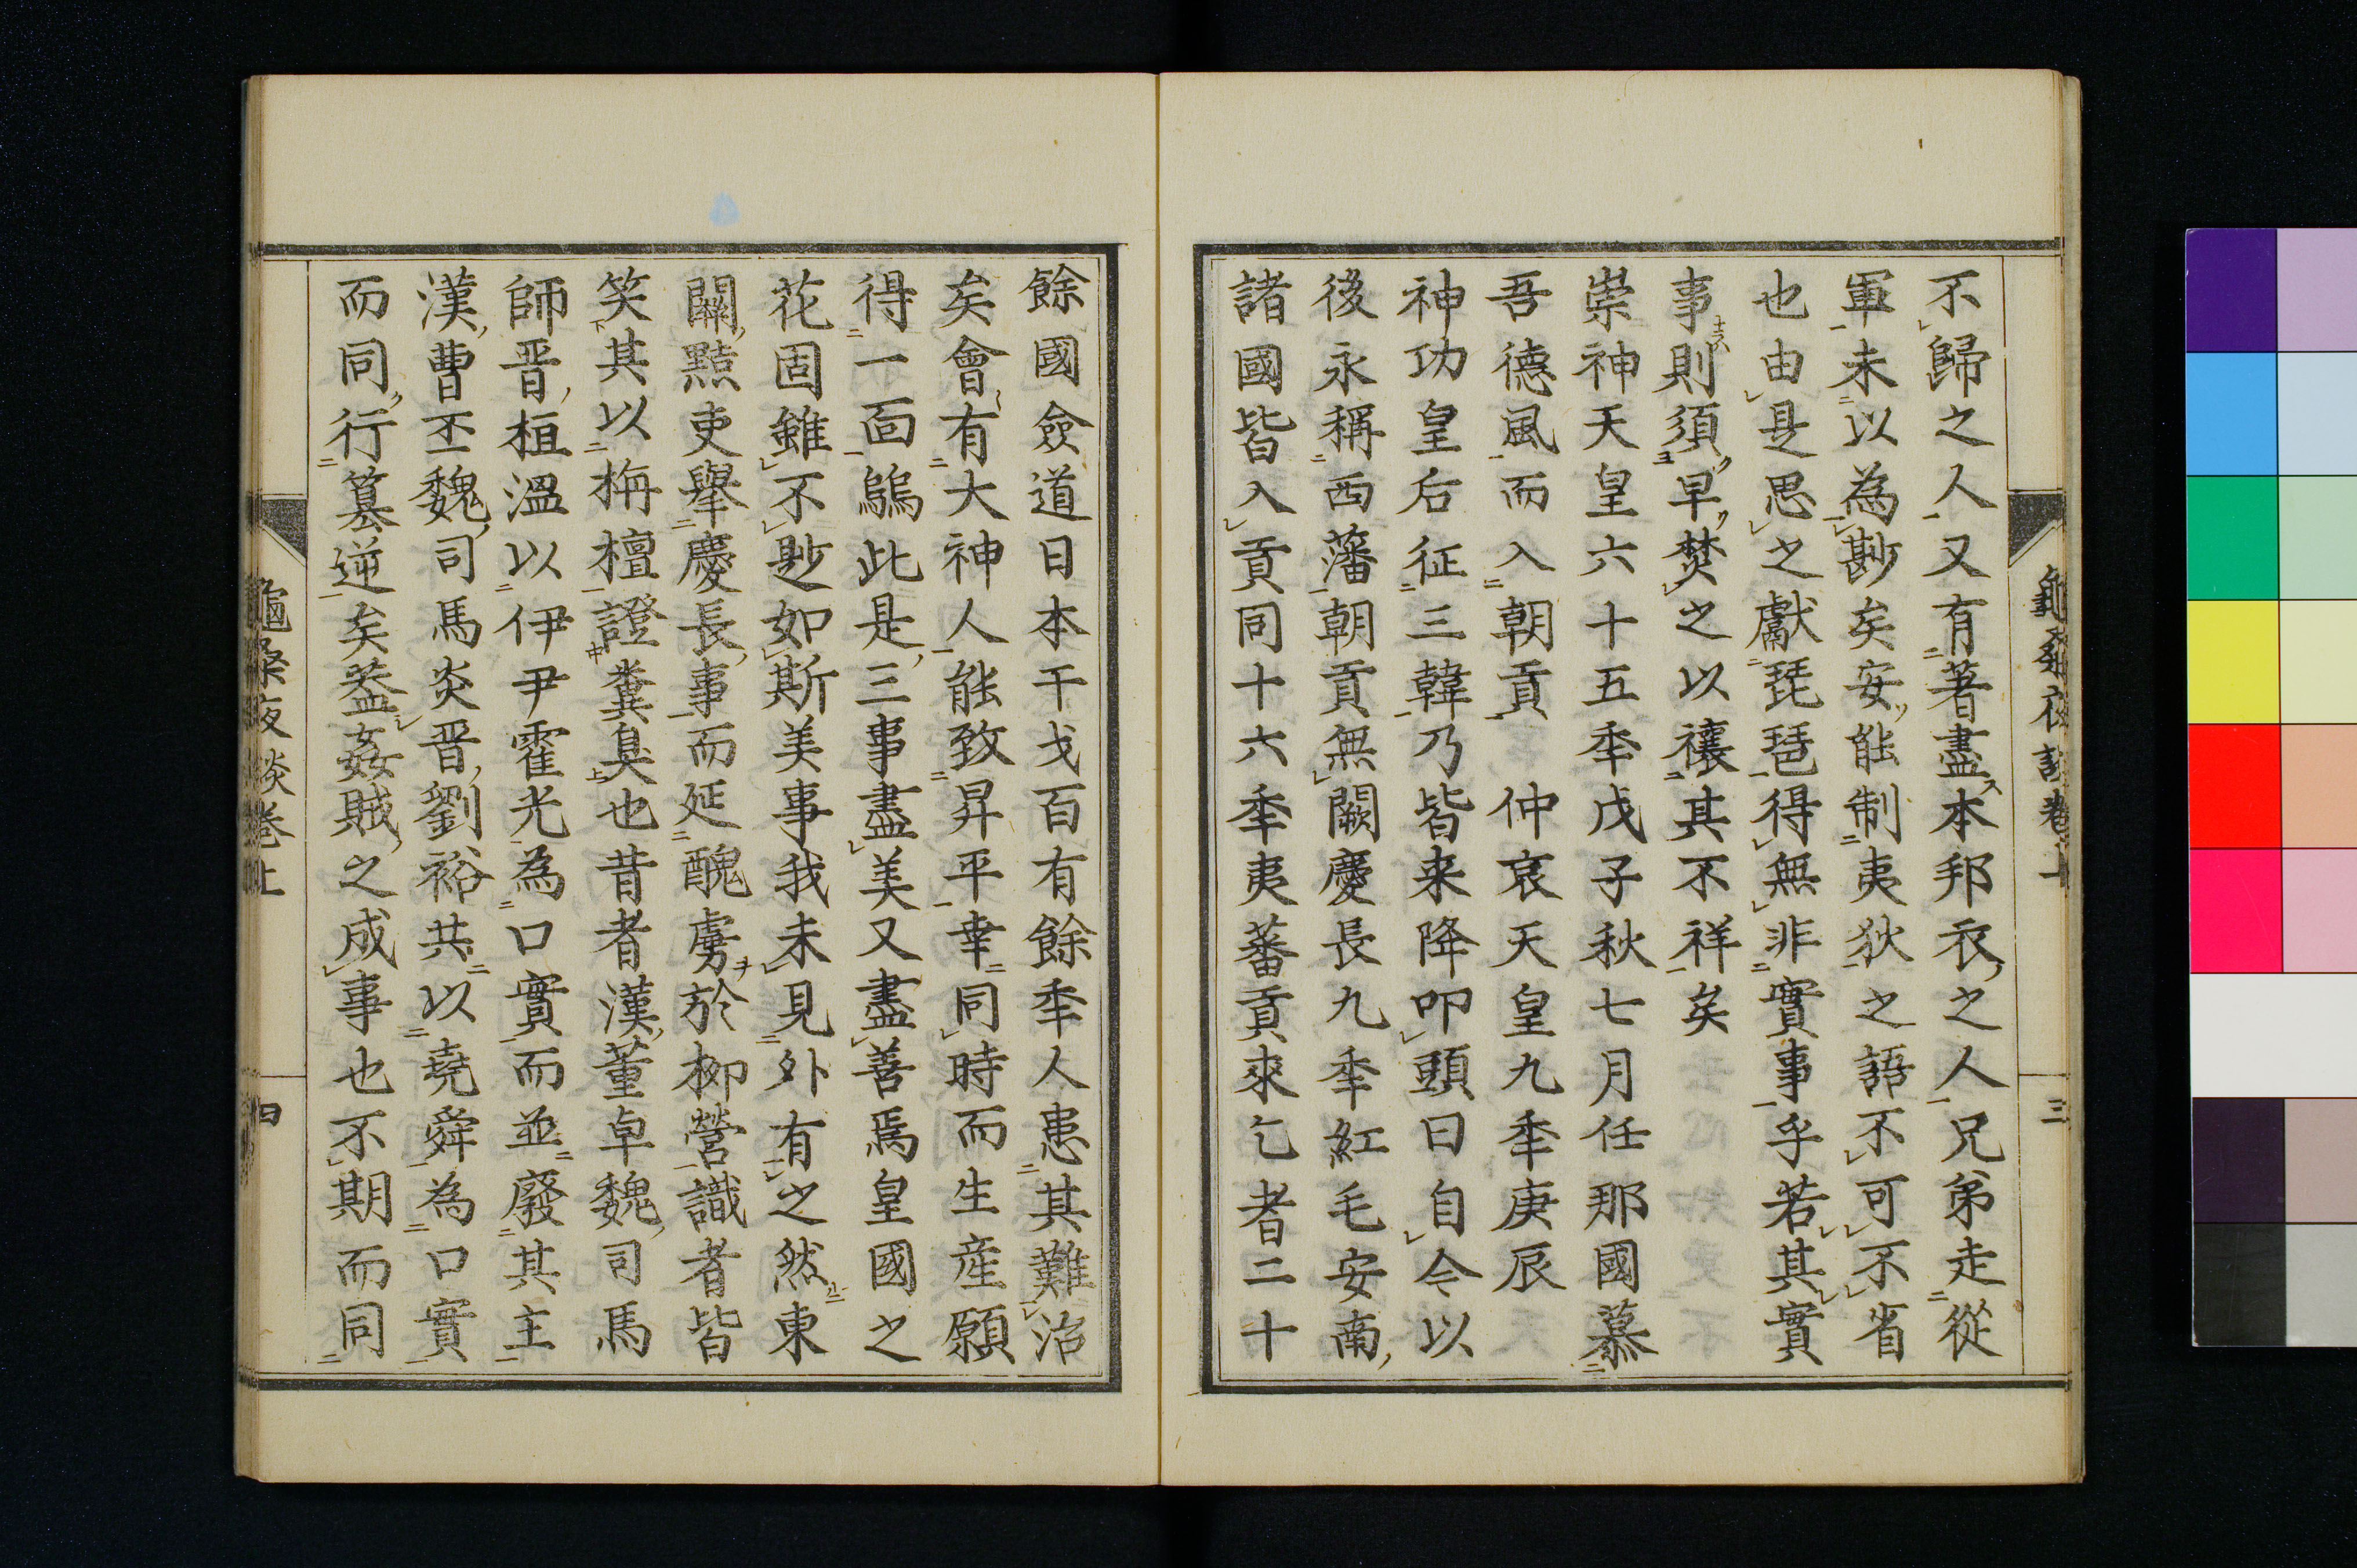 不歸之人又有著盡本邦衣之人兄弟走從
軍未以為尠矣安能制夷狄之語不可不省
也由是思之獻琵琶得無非實事乎若其實
事則須早焚之以禳其不祥矣
崇神天皇六十五秊戊子秋七月任那國慕
吾德風而入朝貢　仲哀天皇九秊庚辰
神功皇后征三韓乃皆来降叩頭曰自今以
後永稱西藩朝貢無闕慶長九秊紅毛安南
諸國皆入貢同十六秊夷蕃貢來乞者二十
餘國僉道日本干戈百有餘秊人患其難治
矣會有大神人能致昇平幸同時而生産願
得一面鴻此是三事盡美又盡善焉皇國之
花固雖不尠如斯美事我未見外有之然東
關黠吏舉慶長事而延醜虜於柳營識者皆
笑其以栴檀證糞臭也昔者漢董卓魏司馬
師晋桓溫以伊尹霍光為口實而並廢其主
漢曹丕魏司馬炎晋劉裕共以堯舜為口實
而同行篡逆矣蓋姦賊之成事也不期而同
龜桑夜談卷上
四